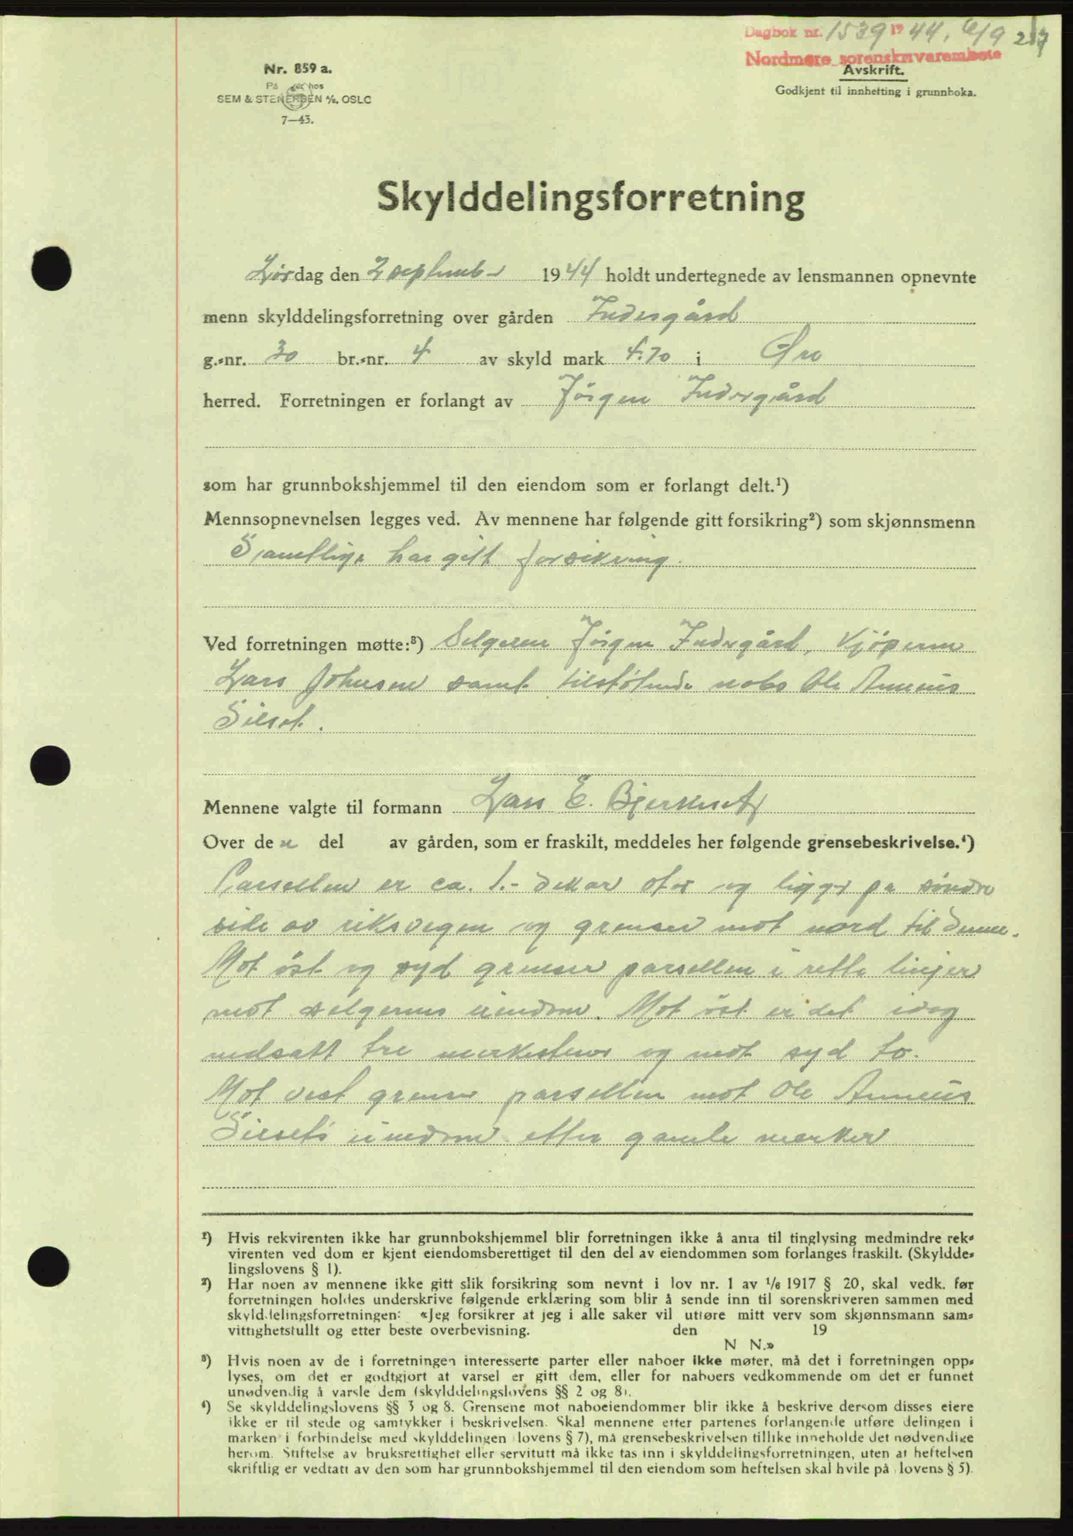 Dagbok nr. 1539 1944, 6/9 217
Nordmøre sorenskriverembete
Nr. 859 a.
På hos
SEM & STENERSEN A/S, OSLO
7—43.
Avskrift.
Godkjent til innhefting i grunnboka.
Skylddelingsforretning
Lørdag den 2 september 1944 holdt undertegnede av lensmannen opnevnte
menn skylddelingsforretning over gården Indergård
g.-nr. 30 br.-nr. 4 av skyld mark 4.70 i Øre
herred. Forretningen er forlangt av Jörgen Indergård
som har grunnbokshjemmel til den eiendom som er forlangt delt.¹)
Mennsopnevnelsen legges ved. Av mennene har følgende gitt forsikring²) som skjønnsmenn
Samtlige har gitt forsikring.
Ved forretningen møtte:³) Selgeren Jörgen Indergård, kjöperen
Lars Johnsen samt tilstötende nabo Ole Anneus
Silset.
Mennene valgte til formann Lars E. Bjerkeset
Over den del av gården, som er fraskilt, meddeles her følgende grensebeskrivelse.⁴)
Parsellen er ca. 1.- dekar stor og ligger på söndre
side av riksvegen og grenser mot nord til denne.
Mot öst og syd grenser parsellen i rette linjer
mot selgerens eiendom. Mot öst er det idag
nedsatt tre merkestener og mot syd to.
Mot vest grenser parsellen mot Ole Anneus
Silsets eiendom etter gamle merker
¹) Hvis rekvirenten ikke har grunnbokshjemmel blir forretningen ikke å anta til tinglysing medmindre rek-
virenten ved dom er kjent eiendomsberettiget til den del av eiendommen som forlanges fraskilt. (Skyldde-
lingslovens § 1).
²) Har noen av mennene ikke gitt slik forsikring som nevnt i lov nr. 1 av 1/6 1917 § 20, skal vedk. før
forretningen holdes underskrive følgende erklæring som blir å sende inn til sorenskriveren sammen med
skylddelingsforretningen: «Jeg forsikrer at jeg i alle saker vil utføre mitt verv som skjønnsmann sam-
vittighetsfullt og etter beste overbevisning. den 19
N N.»
³) Hvis noen av de i forretningen interesserte parter eller naboer ikke møter, må det i forretningen opp-
lyses, om det er godtgjort at varsel er gitt dem, eller for naboers vedkommende om det er funnet
unødvendig å varsle dem (skylddelingslovens §§ 2 og 8).
⁴) Se skylddelingslovens §§ 3 og 8. Grensene mot naboeiendommer blir ikke å beskrive dersom disses eiere
ikke er til stede og samtykker i beskrivelsen. Skal mennene etter partenes forlangende utføre delingen i
marken i forbindelse med skylddelingen (lovens § 7), må grensebeskrivelsen tillike inneholde det nødvendige
herom. Stiftelse av bruksrettighet eller servitutt må ikke tas inn i skylddelingsforretningen, uten at heftelsen
skriftlig er vedtatt av den som har grunnbokshjemmel til den eiendom som heftelsen skal hvile på (lovens § 5).